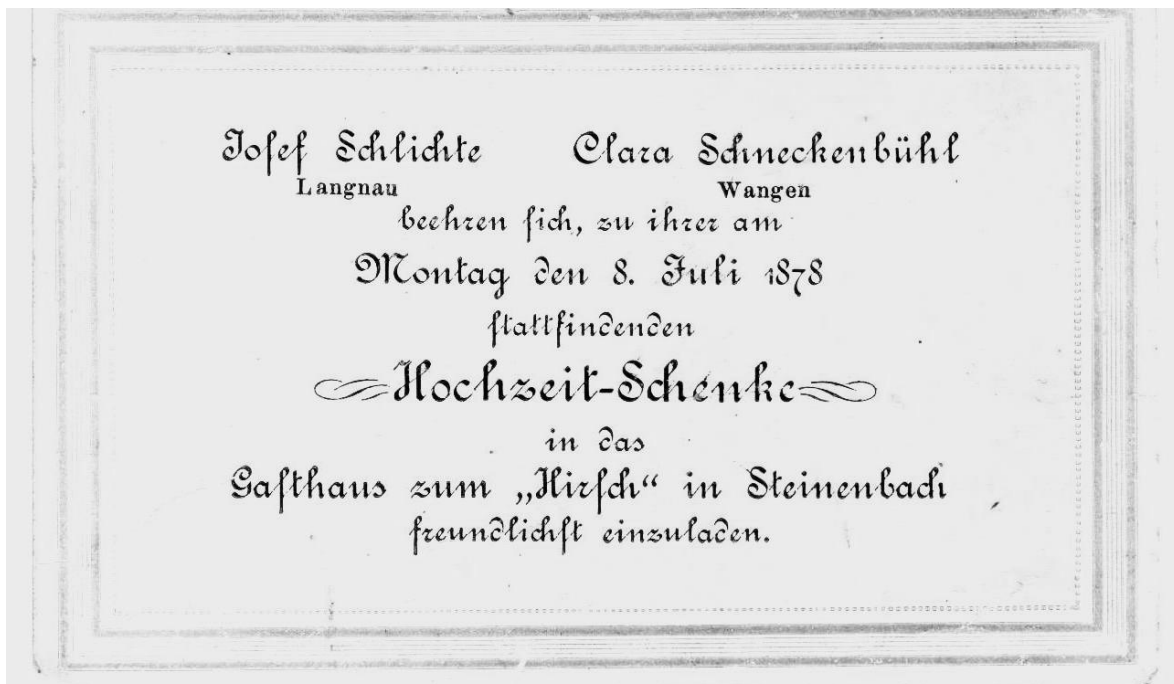 Josef Schlichte Clara Schneckenbühl
Langnau Wangen
beehren sich, zu ihrer am
Montag den 8. Juli 1878
stattfindenden
Hochzeit-Schenke
in das
Gasthaus zum „Hirsch“ in Steinenbach
freundlichst einzuladen.